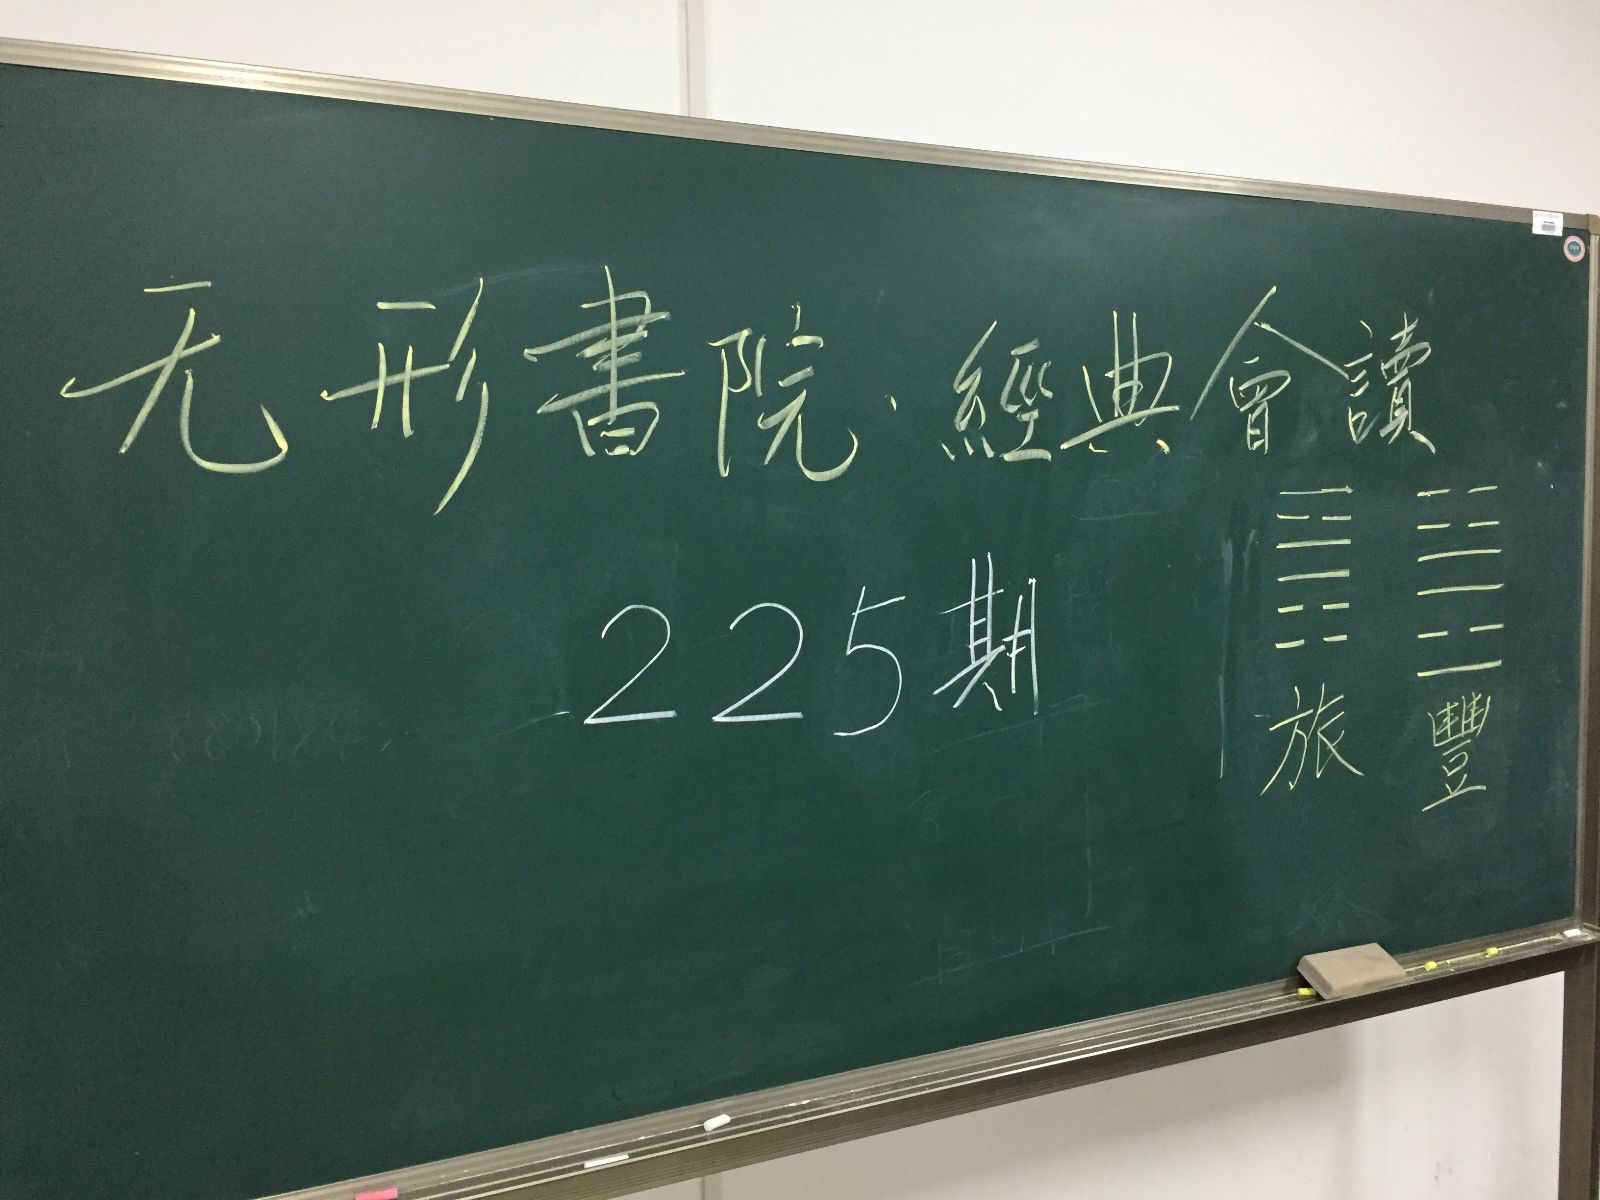 无形書院·經典會讀
225期
旅 豐